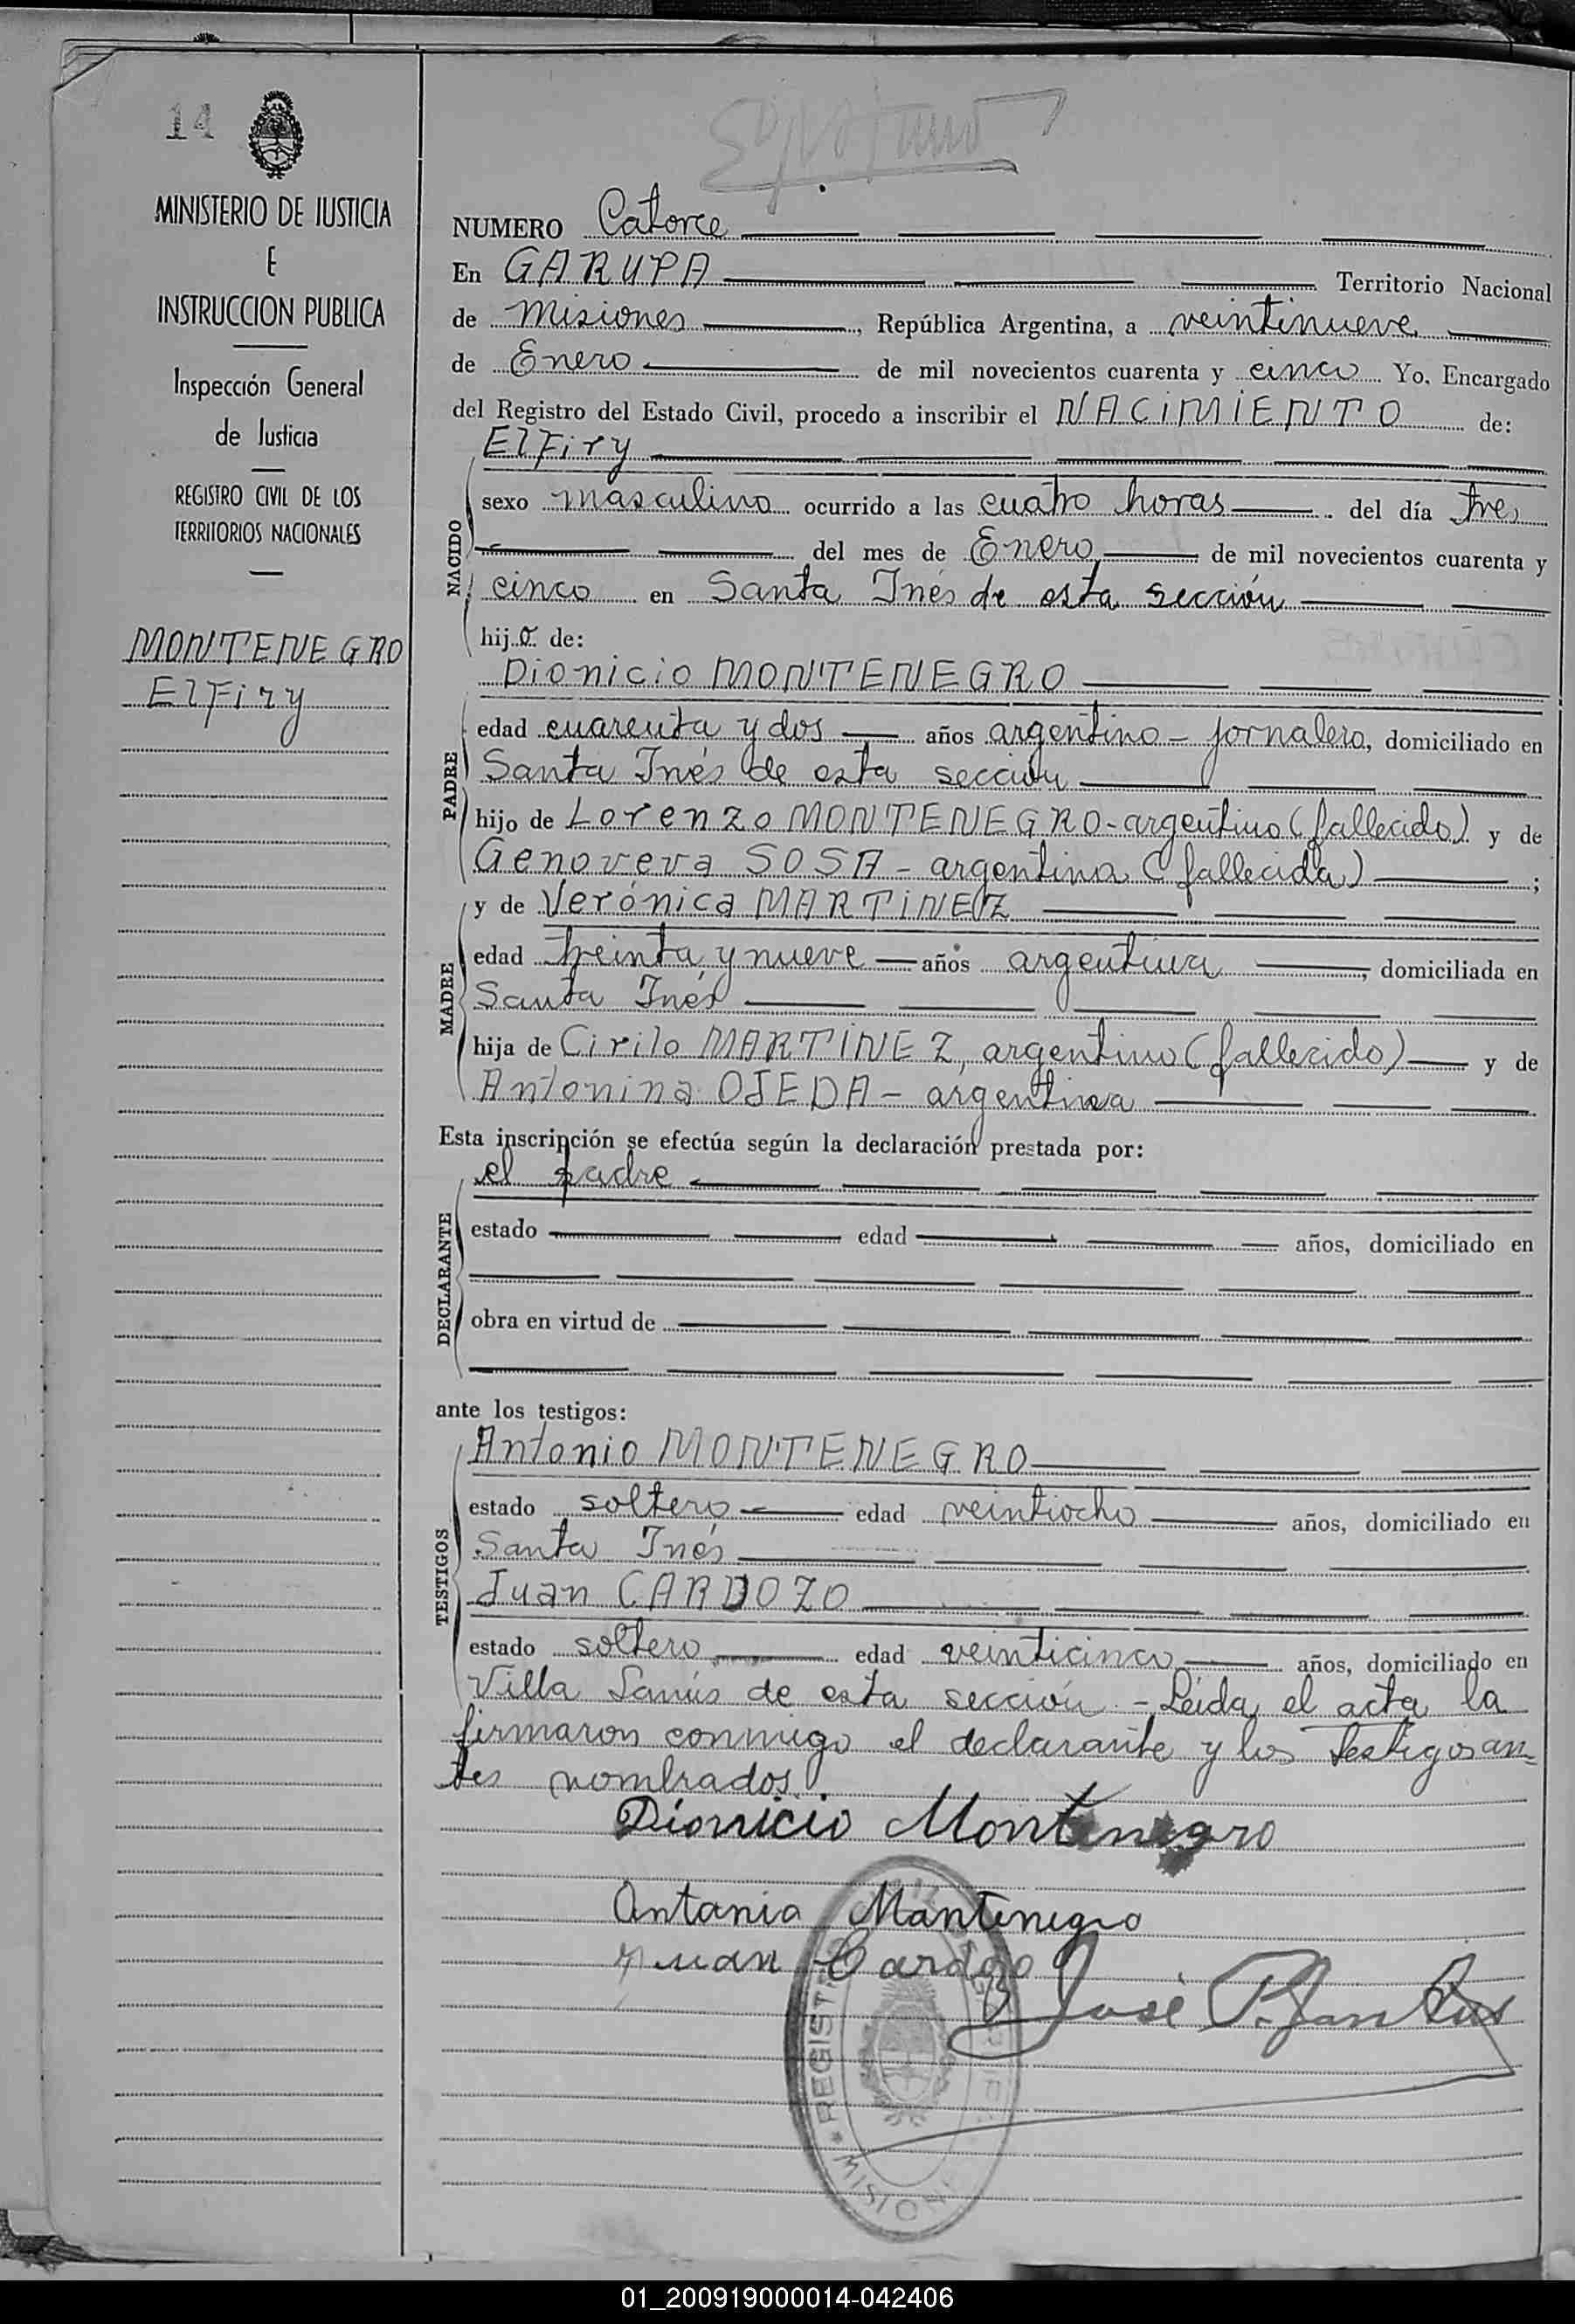 14
MINISTERIO DE JUSTICIA
E
INSTRUCCION PUBLICA
Inspección General
de Justicia
REGISTRO CIVIL DE LOS
TERRITORIOS NACIONALES
MONTENEGRO
Elfiry
NUMERO Catorce
En GARUPA Territorio Nacional
de Misiones, República Argentina, a veintinueve
de Enero de mil novecientos cuarenta y cinco Yo, Encargado
del Registro del Estado Civil, procedo a inscribir el NACIMIENTO de:
Elfiry
NACIDO
sexo masculino ocurrido a las cuatro horas del día tres
del mes de Enero de mil novecientos cuarenta y
cinco en Santa Inés de esta sección
hijo de:
Dionicio MONTENEGRO
PADRE
edad cuarenta y dos años argentino - jornalero, domiciliado en
Santa Inés de esta sección
hijo de Lorenzo MONTENEGRO - argentino (fallecido) y de
Genoveva SOSA - argentina (fallecida) ;
MADRE
y de Verónica MARTINEZ
edad treinta y nueve años argentina, domiciliada en
Santa Inés
hija de Cirilo MARTINEZ, argentino (fallecido) y de
Antonina OJEDA - argentina
Esta inscripción se efectúa según la declaración prestada por:
DECLARANTE
el padre
estado edad años, domiciliado en
obra en virtud de
ante los testigos:
TESTIGOS
Antonio MONTENEGRO
estado soltero edad veintiocho años, domiciliado en
Santa Inés
Juan CARDOZO
estado soltero edad veinticinco años, domiciliado en
Villa Lanús de esta sección - Leída el acta la
firmaron conmigo el declarante y los testigos an=
tes nombrados.
Dionicio Montenegro
Antania Mantenegro
Juan Cardozo
José P.
REGISTR
MISION
01_200919000014-042406